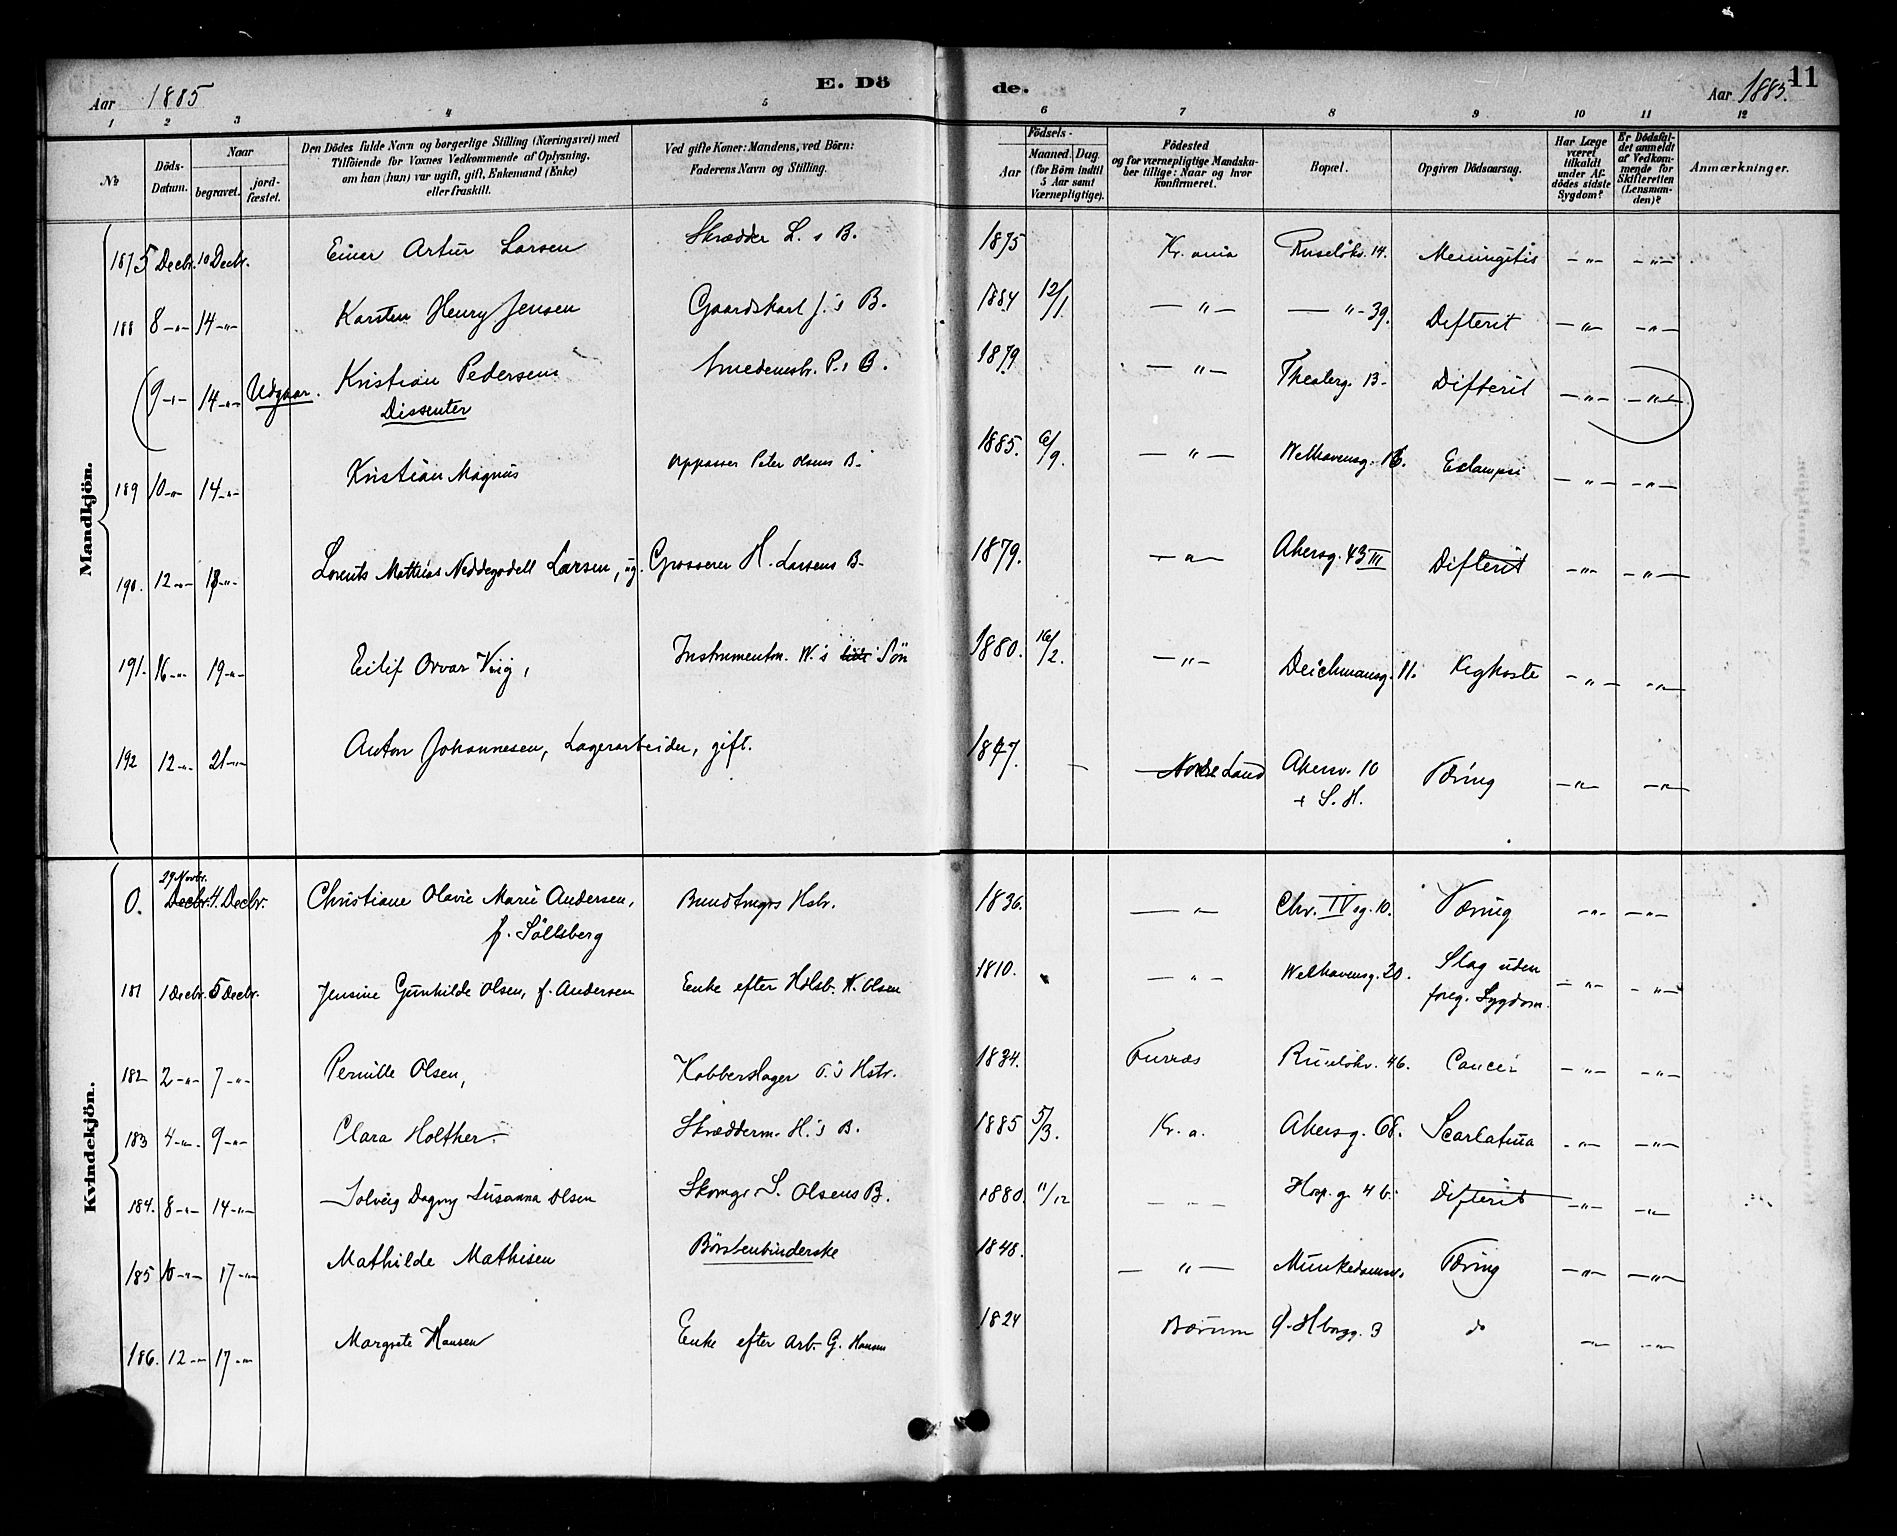 Aar 1885
E. Dö
de.
Aar 1885.
11
1 2 3 4 5 6 7 8 9 10 11 12
№
Döds-Datum.
Naar
begravet.
jord-fæstet.
Den Dödes fulde Navn og borgerlige Stilling (Næringsvei) med
Tilföiende for Voxnes Vedkommende af Oplysning,
om han (hun) var ugift, gift, Enkemand (Enke)
eller fraskilt.
Ved gifte Koner: Mandens, ved Börn:
Faderens Navn og Stilling.
Födsels-
Aar
Maaned. Dag
(for Börn indtil
5 Aar samt
Værnepligtige).
Födested
og for værnepligtige Mandsku-
ber tillige: Naar og hvor
konfirmeret.
Bopæl.
Opgiven Dödsaarsag.
Har Læge
været
tilkaldt
under Af-
dödes sidste
Sygdom?
Er Dödsfal-
det anmeldt
af Vedkom-
mende for
Skifteretten
(Lensman-
den)?
Anmærkninger.
Mandkjön.
187 5 Decbr. 10 Decbr. Einar Artur Larsen Skrædder L.s B. 1875 Kr.ania Ruselökv. 14. Meningitis -"- -"-
188 8 -"- 14 -"- Karsten Henry Jensen Gaardskarl J.'s B. 1884 12/1 -"- -"- 39. Difterit -"- -"-
9 -"- 14 -"- Udgaar. Kristian Pedersen Smedemestr. P.s B. 1879 -"- Theaterg. 13. Difterit -"- -"-
Dissenter
189 10 -"- 14 -"- Kristian Magnus Oppasser Peter Olsens B. 1885. 6/9. -"- Welhavensg. 16. Eclampsi -"- -"-
190. 12 -"- 18 -"- Lorents Mathias Neddegodell Larsen, ug. Grosserer H. Larsens B. 1879. -"- Akersg. 43 III Difterit -"- -"-
191. 16 -"- 19 -"- Eilif Orvar Viig, Instrumentm. W.'s Sön 1880. 16/2. -"- Deichmansg. 11. Kighoste -"- -"-
192 12 -"- 21 -"- Anton Johannesen, Lagerarbeider, gift. 1847. Nordre Land Akersv. 10 Tæring -"- -"-
+ S. H.
Kvindekjön.
29 Novbr.
0. Decbr. 4 Decbr. Christiane Olavie Marie Andersen, Bundtmgrs Hstr. 1836. -"- Chr. IV g. 10. Tæring -"- -"-
f. Söllsberg
181 1 Decbr. 5 Decbr. Jensine Gunhilde Olsen, f. Andersen Enke efter Hdlsb. K. Olsen 1810. -"- Welhavensg. 20. Slag uden -"- -"-
foreg. Sygdom.
182 2 -"- 7 -"- Pernille Olsen, Kobberslager O.'s Hstr. 1834. Furnæs Ruselökv. 46. Cancer -"- -"-
183 4 -"- 9 -"- Clara Holther Skrædderm. H.'s B. 1885 5/3. Kr.a. Akersg. 68. Scarlatina -"- -"-
184. 8 -"- 14 -"- Solveig Dagny Susanna Olsen Skomgr S. Olsens B. 1880. 11/12 - - - Hosp. g. 4 b. Difterit -"- -"-
185 10 -"- 17 -"- Mathilde Mathisen Börstenbinderske 1848. -"- Munkedamsv. Tæring -"- -"-
186. 12 -"- 17 -"- Margrete Hansen Enke efter Arb. G. Hansen 1824 Bærum 3 do -"- -"-